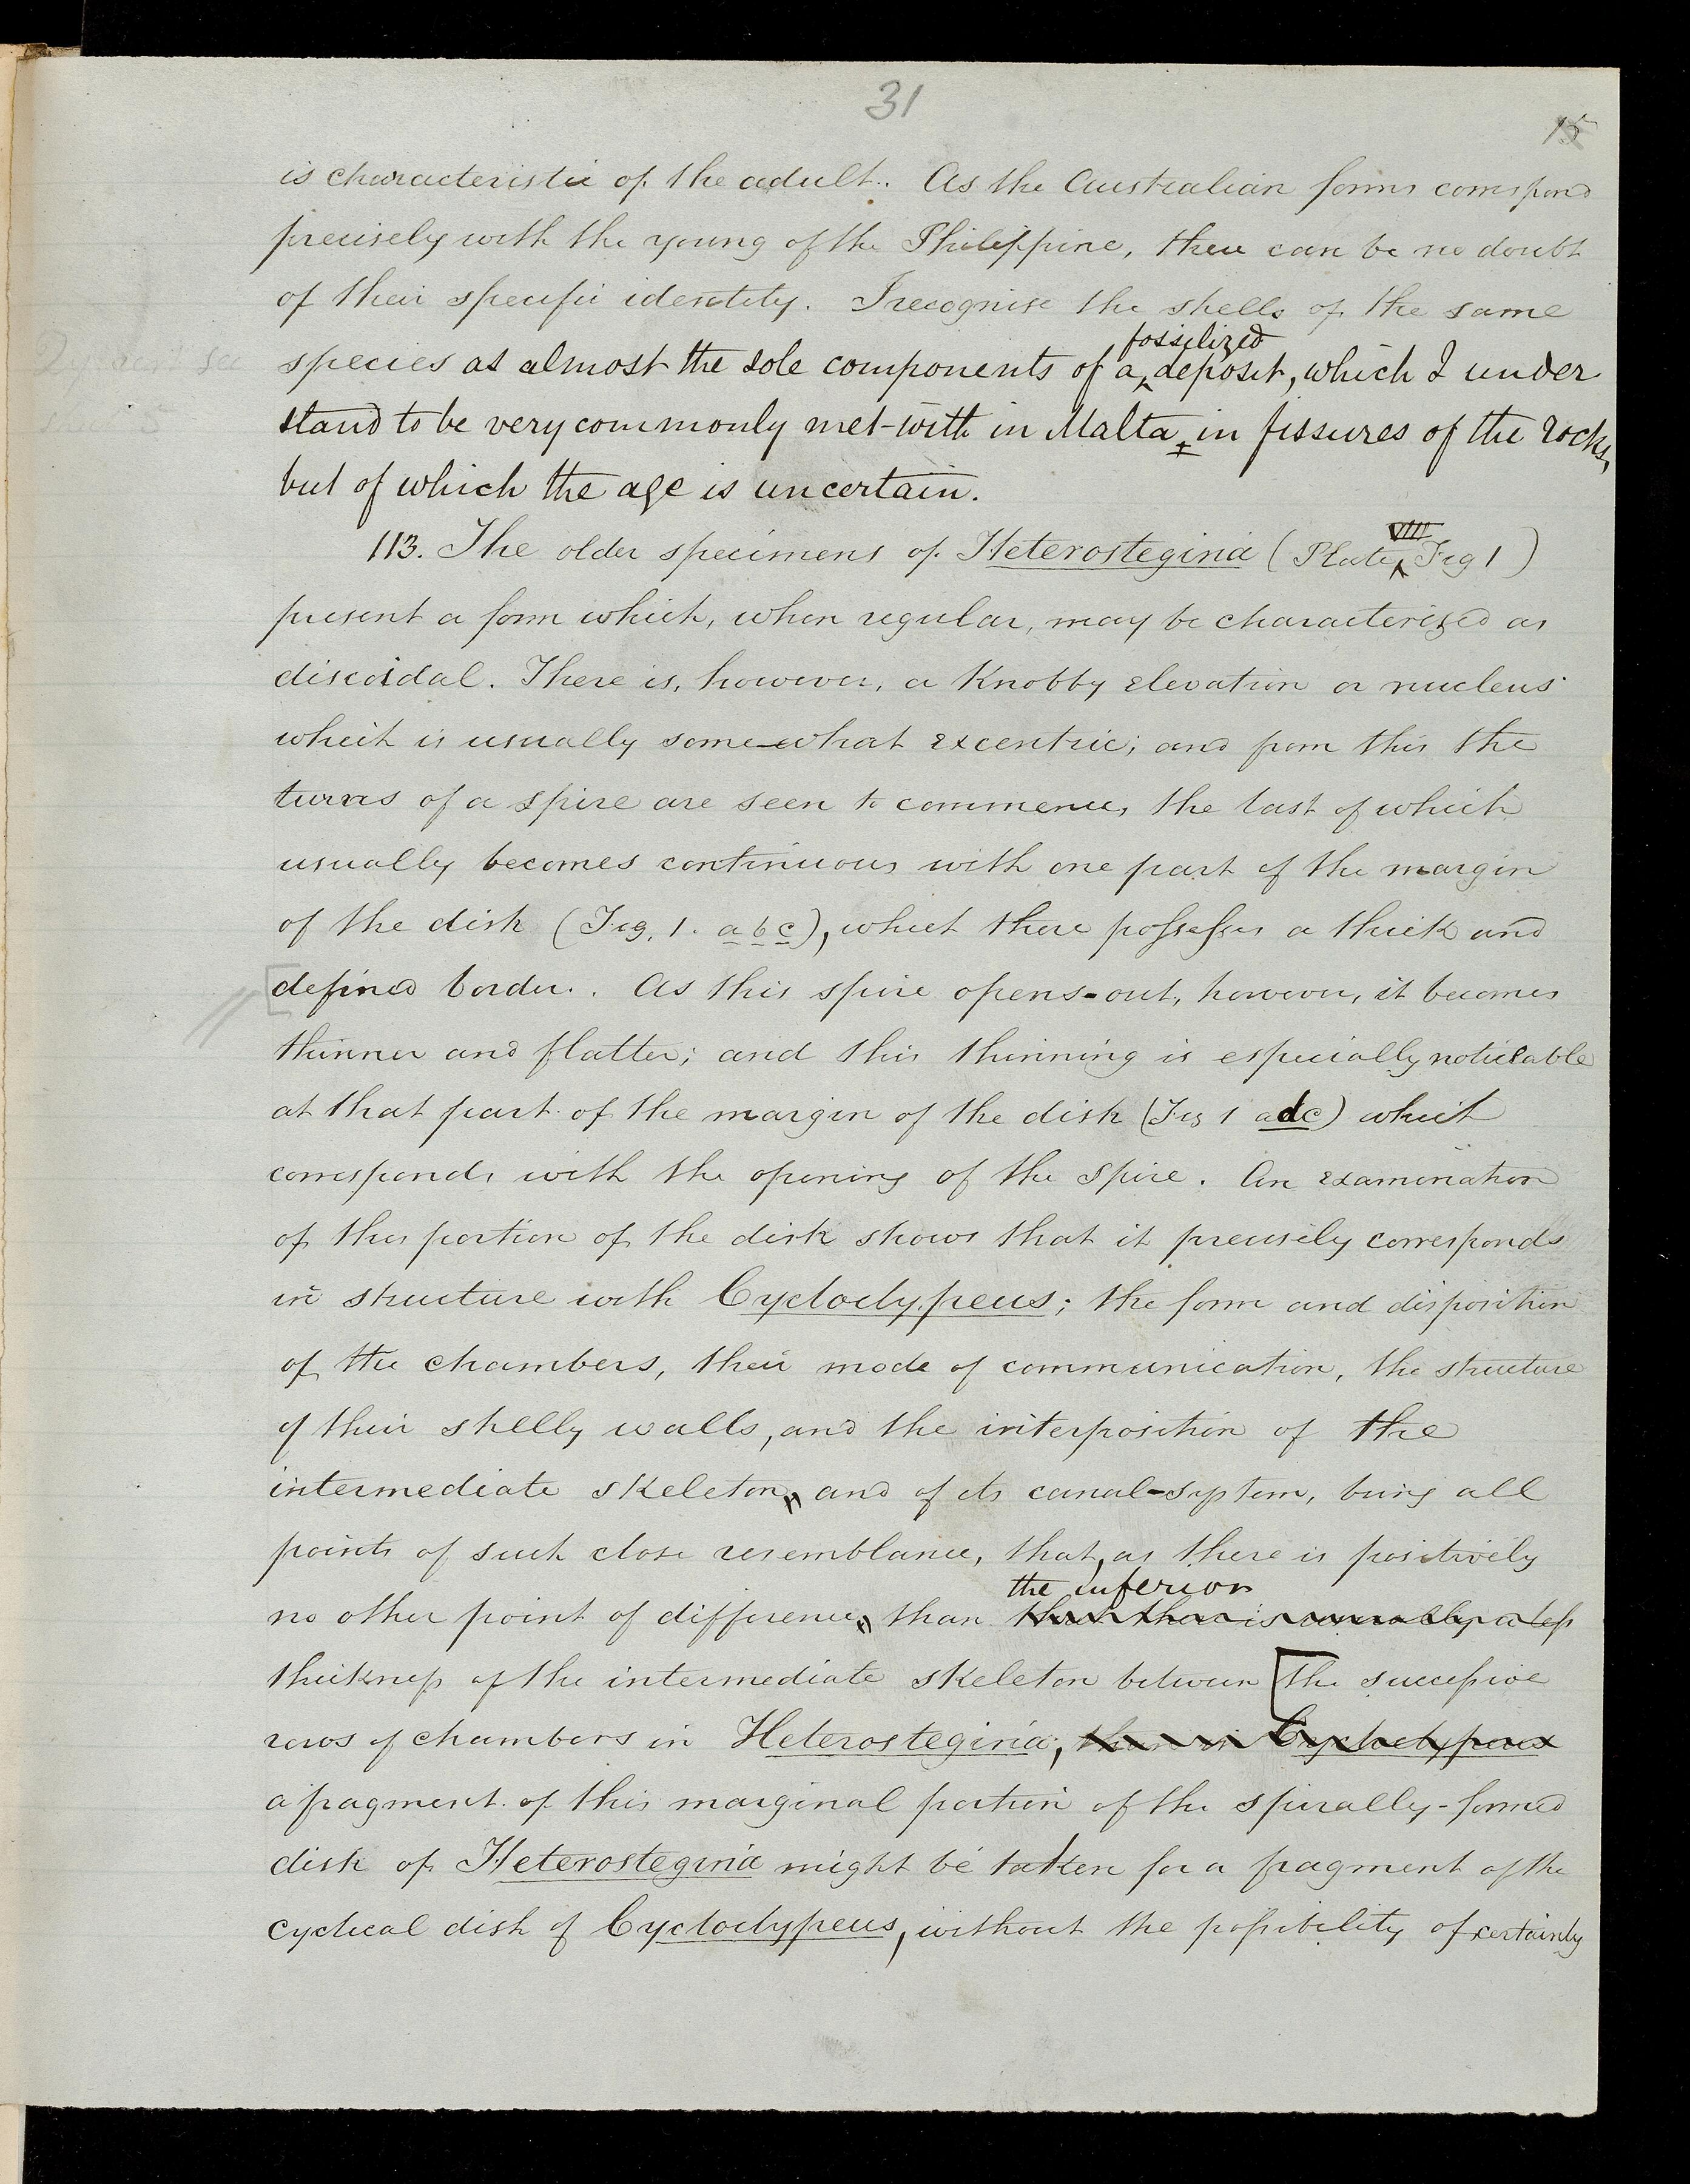 31
15
is characteristic of the adult. As the Australian forms correspond
precisely with the young of the Philippine, there can be no doubt
of their specific identity. I recognise the shells of the same
fossilized
species as almost the sole components of a deposit, which I under
stand to be very commonly met-with in Malta in fissures of the rocks,
but of which the age is uncertain.
VIII
113. The older specimens of Heterostegina (Plate Fig 1)
present a form which, when regular, may be characterized as
discoidal. There is, however, a Knobby elevation or nucleus
which is usually somewhat excentric; and from this the
turns of a spire are seen to commence, the last of which
usually becomes continuous with one part of the margin
of the disk (Fig. 1. a b c), which there possesses a thick and
defined border. As this spire opens-out, however, it becomes
thinner and flatter; and this thinning is especially noticeable
at that part of the margin of the disk (Fig 1 adc) which
corresponds with the opening of the spire. An examination
of this portion of the disk shows that it precisely corresponds
in structure with Cycloclypeus; the form and disposition
of the chambers, their mode of communication, the structure
of their shelly walls, and the interposition of the
intermediate skeleton, and of its canal-system, being all
points of such close resemblance, that, as there is positively
the inferior
no other point of difference, than that there is usually a less
thickness of the intermediate skeleton between the successive
rows of chambers in Heterostegina, than in Cycloclypeus
a fragment of this marginal portion of the spirally-formed
disk of Heterostegina might be taken for a fragment of the
cyclical disk of Cycloclypeus, without the possibility of certainly